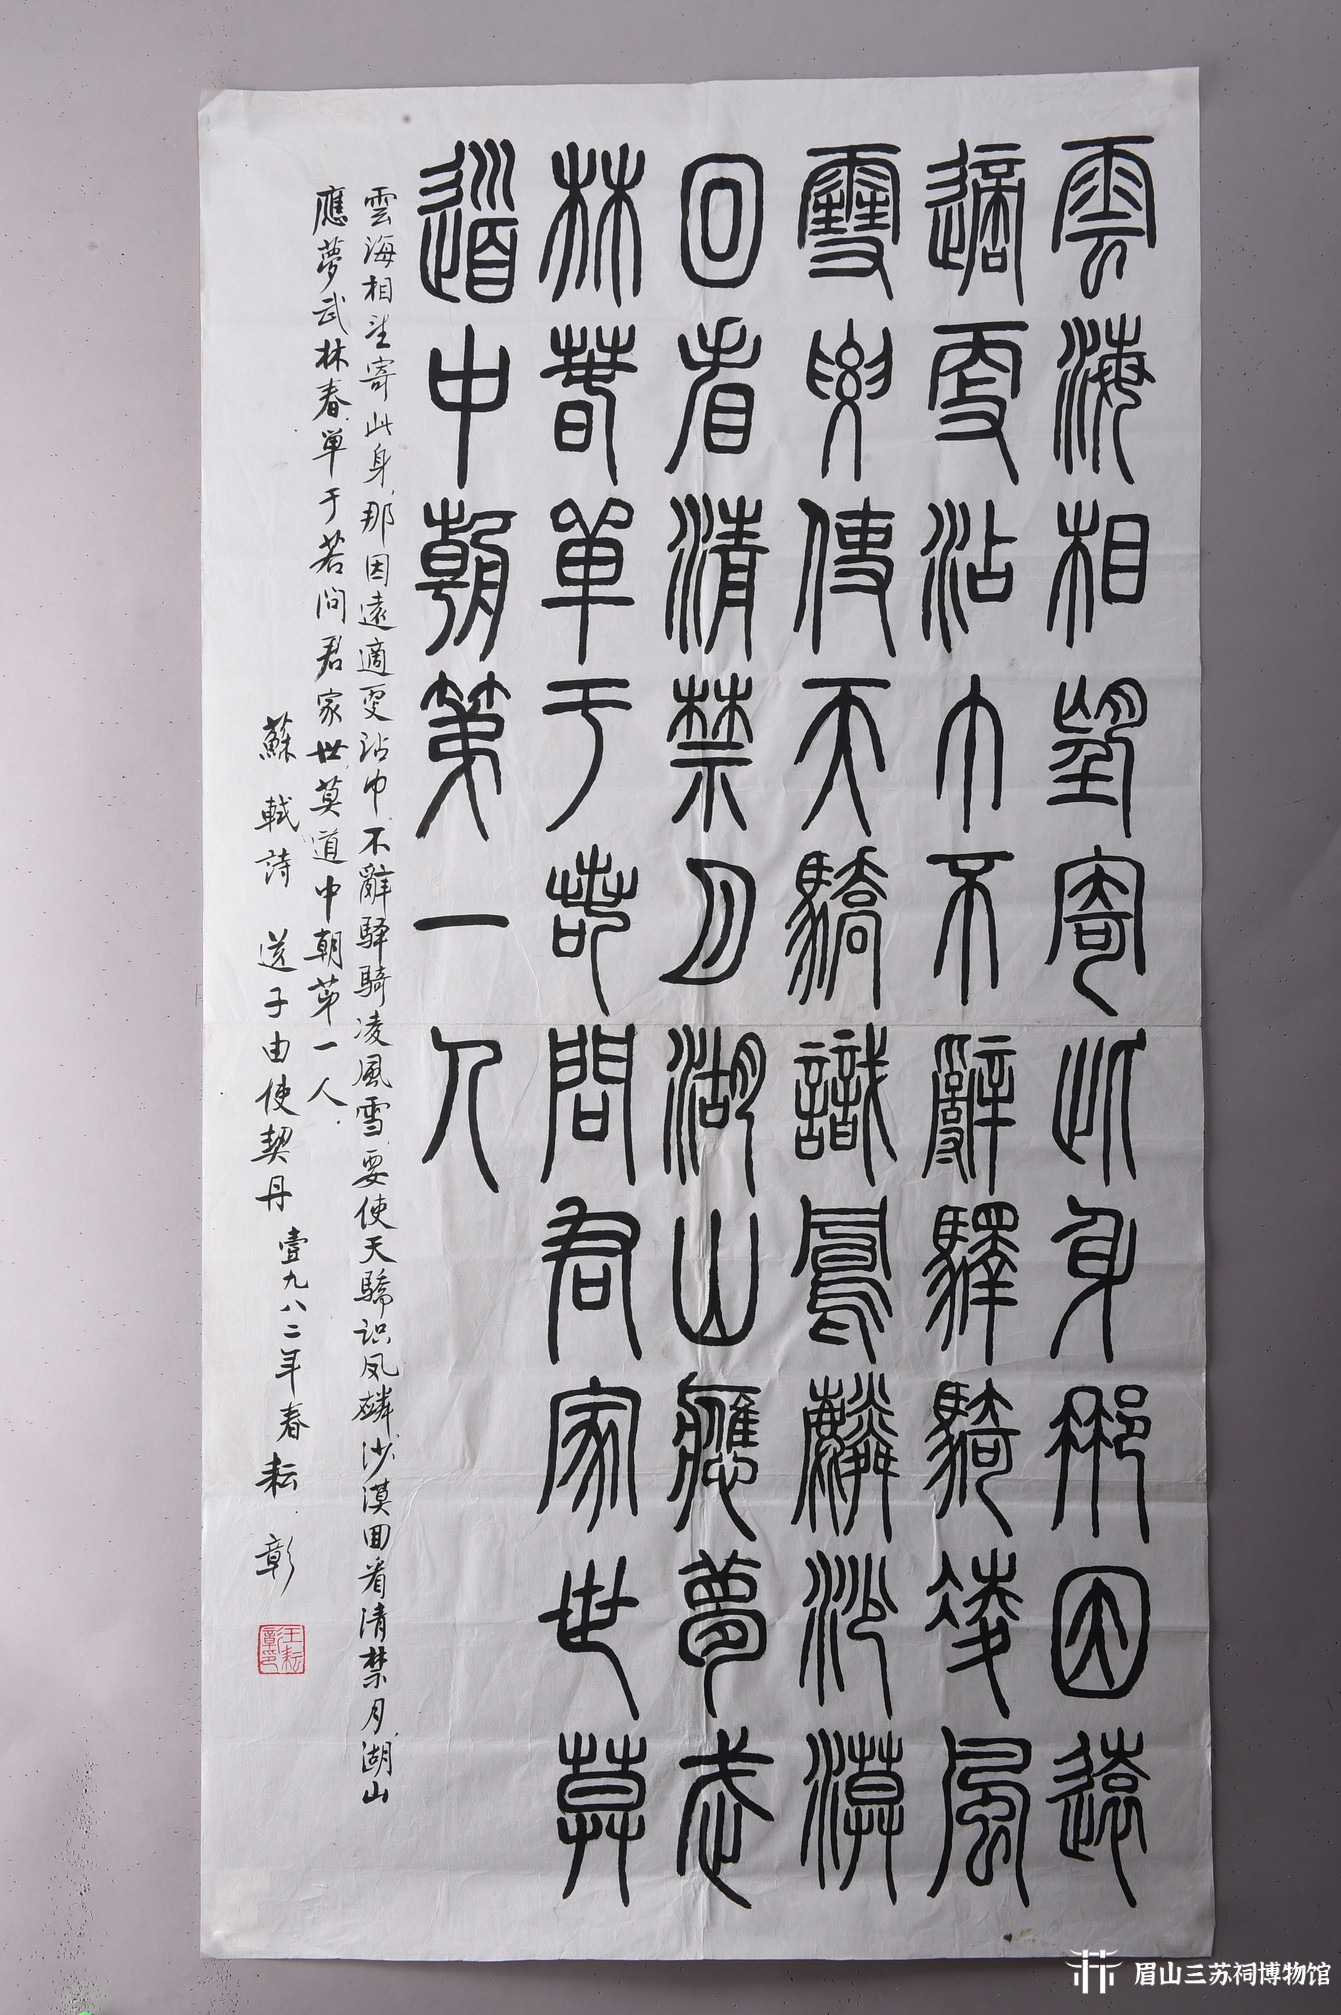 雲海相望寄此身那因遠
適更沾巾不辭驛騎凌風
雪要使天驕識鳳麟沙漠
回看清禁月湖山應夢武
林春單于若問君家世莫
道中朝第一人
雲海相望寄此身,那因遠適更沾巾.不辭驿騎凌風雪,要使天驕识凤麟.沙漠回看清禁月,湖山
應夢武林春.單于若问君家世,莫道中朝第一人.
蘇軾詩 送子由使契丹 壹九八二年春耘.彰
王耘彰印
眉山三苏祠博物馆